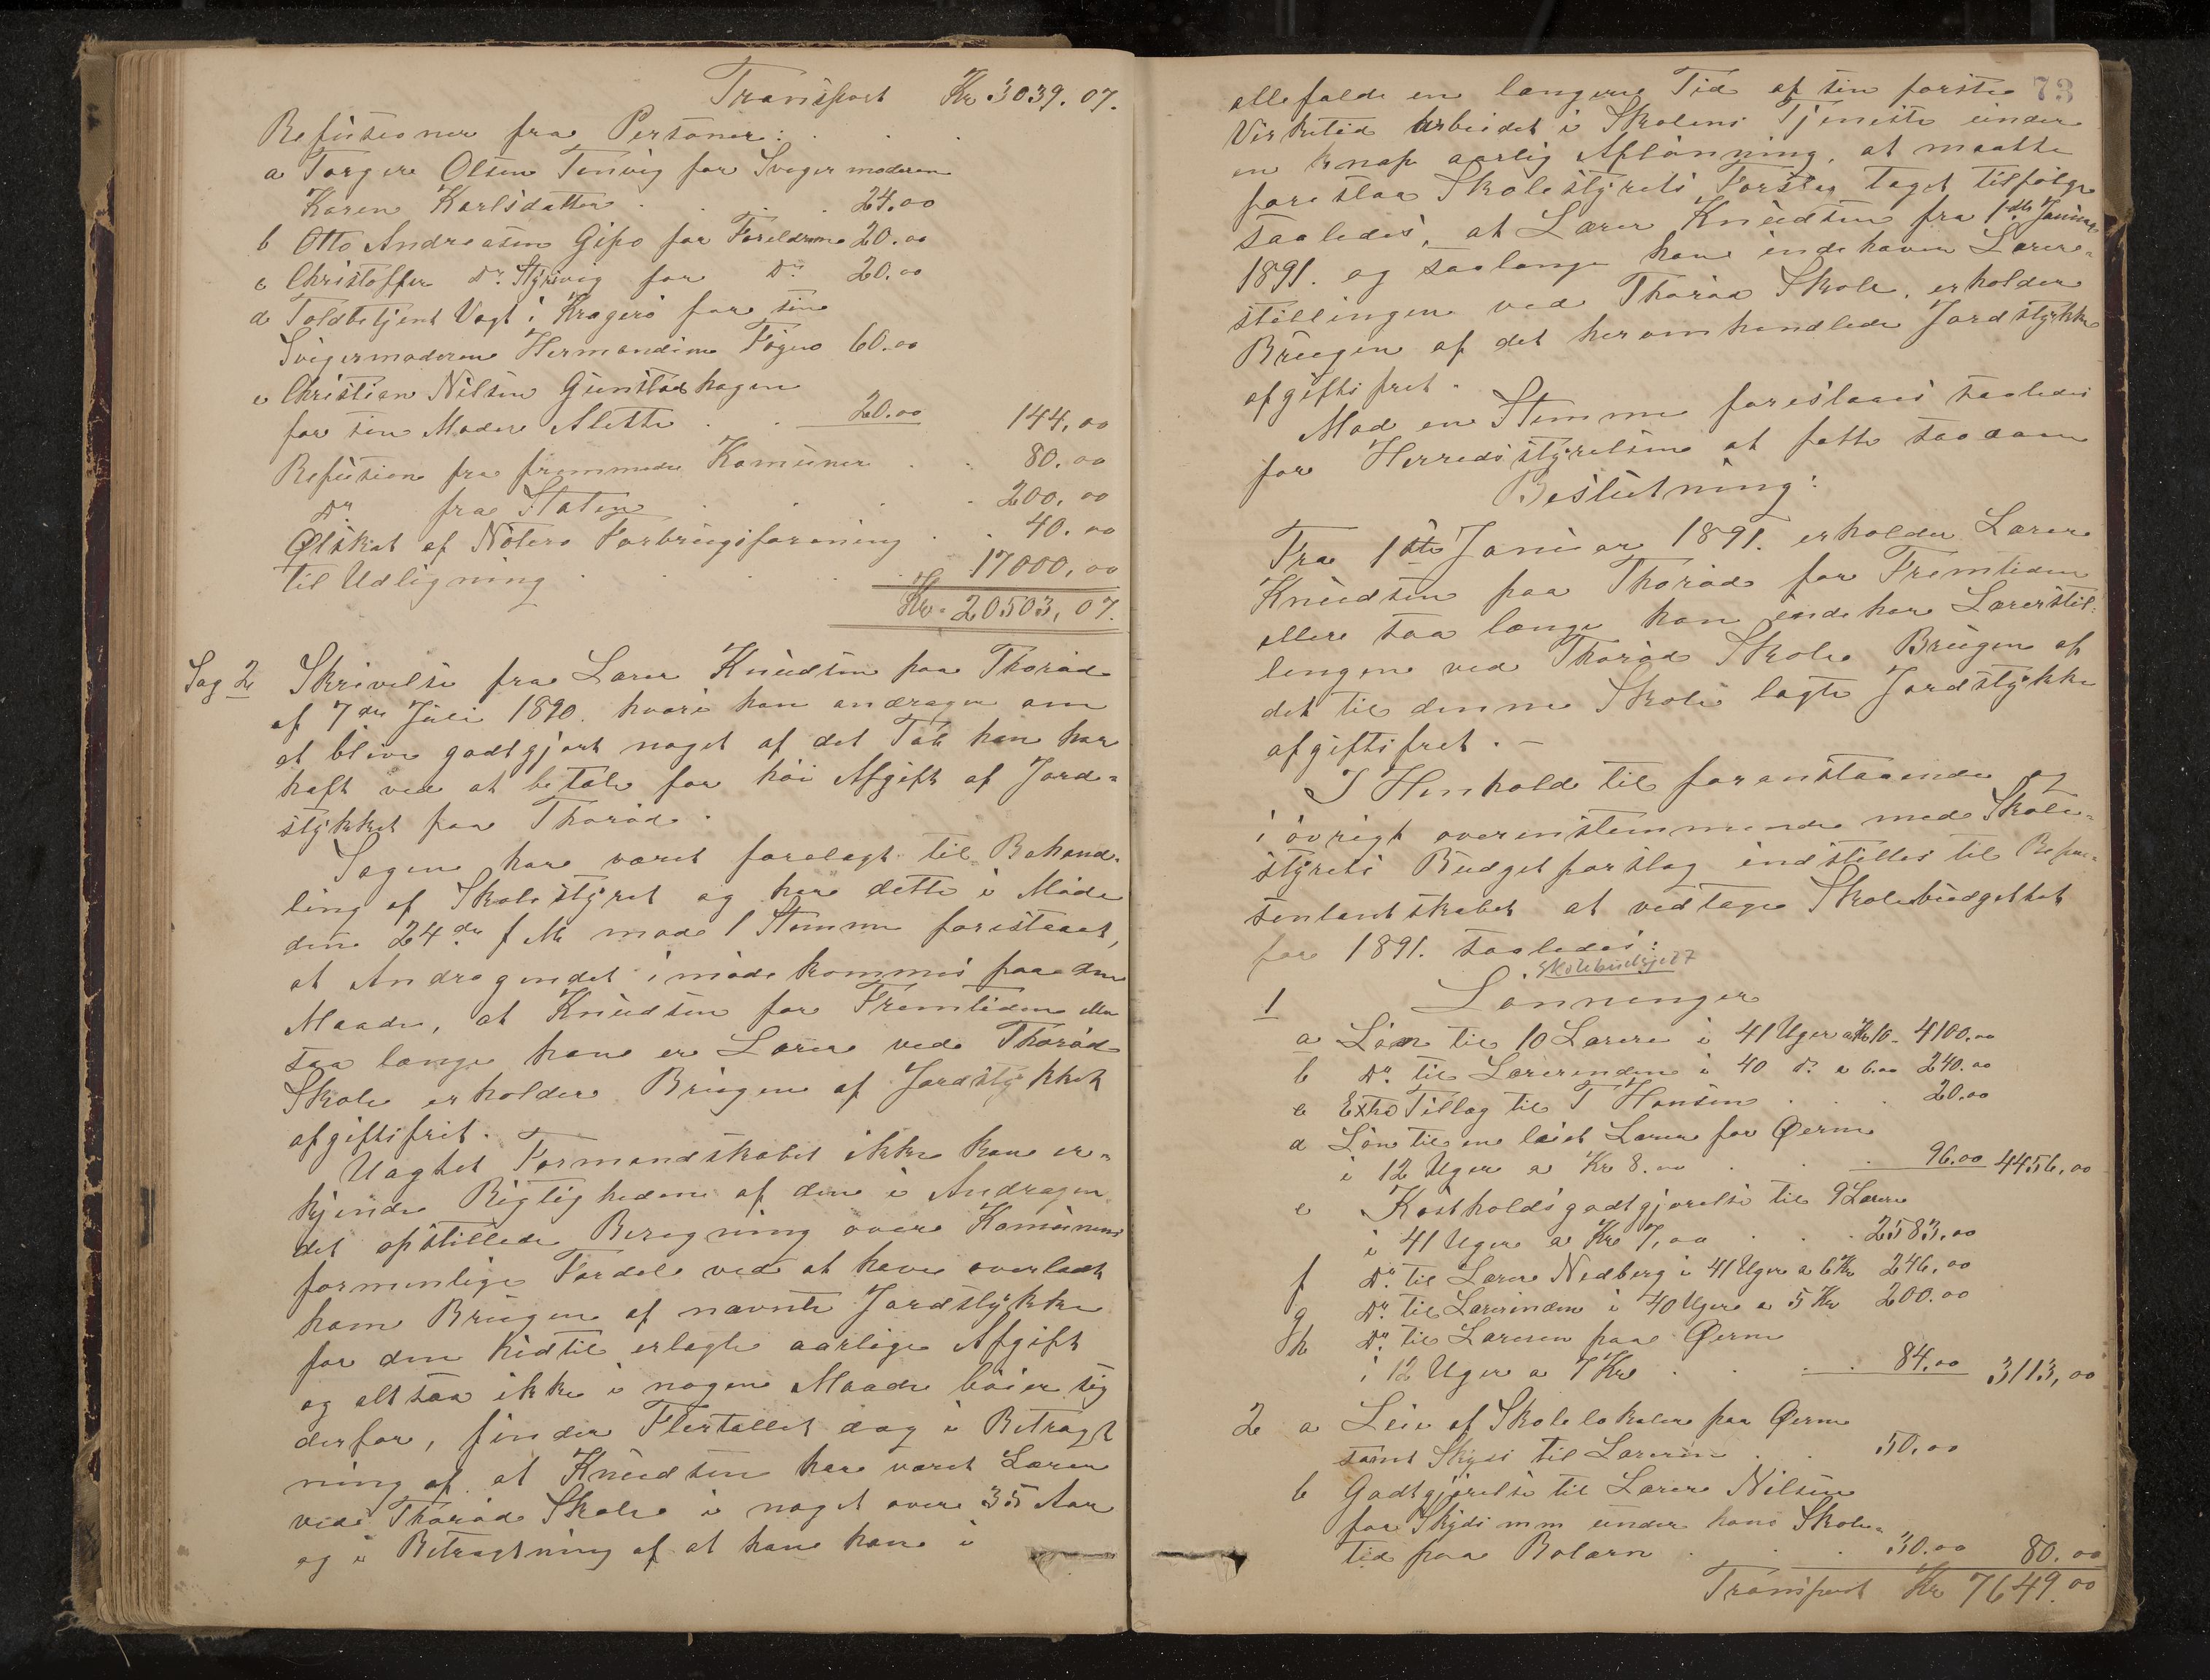 Transport Kr 3039.07.
Refusioner fra Personer:
a Torger Olsen Tenvig for Svigermoderen
Karen Karlsdatter . . . 24,00
b Otto Andreasen Gipø for Foreldrene 20.00
c Christoffer Do. Styrsvig for Do. 20.00
d Toldbetjent Vogt i Kragerö for sin
Svigermoderen Hermandine Föyno 60.00
e Christian Nilsen Gunstadhagen
for sin Moder Alette . . 20.00 144,00
Refusion fra fremmede Komuner . . 80.00
Do fra Staten . . . 200,00
Ølskat af Nöterö Forbrugsforening . . 40.00
til Udligning . . . . 17000,00
Kr. 20503,07.
Sag 2 Skrivelse fra Lærer Knudsen paa Thoröd
af 7de Juli 1890. hvori han andrager om
at blive godtgjort noget af det Tab han har
haft ved at betale for höi Afgift af Jord-
stykket paa Thoröd.
Sagen har været forelagt til Behand-
ling af Skolestyret og har dette i Möde
den 24de f M mod 1 Stemme foreslaaet,
at Andragendet imödekommes paa den
Maade, at Knudsen for Fremtiden eller
saa længe han er Lærer ved Thoröd
Skole erholder Brugen af Jordstykket
afgiftsfrit.
Uagtet Formandskabet ikke kan er-
kjende Rigtigheden af den i Andragen-
det opstillede Beregning over Komunens
formenlige Fordel ved at have overladt
ham Brugen af nævnte Jordstykke
for den hidtil erlagte aarlige Afgift
og altsaa ikke i nogen Maade böier sig
derfor, finder Flertallet dog i Betragt
ning af at Knudsen har været Lærer
ved Thoröd Skole i noget over 35 Aar
og i Betragtning af at han har i
73
allefald en længere Tid af sin förste
Virketid arbeidet i Skolens Tjeneste under
en knap aarlig Aflönning, at maatte
foreslaa Skolestyrets Forslag taget tilfölge
saaledes, at Lærer Knudsen fra 1ste Januar
1891. og saalænge han indehaver Lærer-
stillingen ved Thoröd Skole, erholder
Brugen af det heromhandlede Jordstykke
afgiftsfrit.
Mod en Stemme foreslaaes saaledes
for Herredsstyrelsen at fatte saadan
Beslutning:
Fra 1ste Januar 1891. erholder Lærer
Knudsen paa Thoröd for Fremtiden
eller saa længe han indehar Lærerstil-
lingen ved Thoröd Skole Brugen af
det til denne Skole lagte Jordstykke
afgiftsfrit. —
I Henhold til foranstaaende og
i övrigt overenstemmende med Skole-
styrets Budgetforslag indstilles til Repræ-
sentantskabet at vedtage Skolebudgettet
for 1891. saaledes:
Skolebudsjett
1 Lönninger
a Lön til 10 Lærere i 41 Uger a Kr 10 - 4100,00
b Do. til Lærerinden i 40 Do. a 6.00 240.00
c Extra Tillæg til T Hansen . . . 20.00
d Lön til en leiet Lærer for Øerne
i 12 Uger a Kr 8.00 . . . 96.00 4456,00
e Kostholdsgodtgjörelse til 9 Lærere
i 41 Uger a Kr 7,00 . . . 2583,00
f Do. til Lærer Nedberg i 41 Uger a 6 Kr 246,00
g Do. til Lærerinden i 40 Uger a 5 Kr 200.00
h Do. til Læreren paa Øerne
i 12 Uger a 7 Kr . . . 84.00 3113,00
2 a Leie af Skolelokaler paa Øerne
samt Skyds til Læreren . . 50,00
b Godtgjörelse til Lærer Nilsen
for Skyds m m under hans Skole-
tid paa Bolærn . . . 30.00 80.00
Transport Kr 7649.00